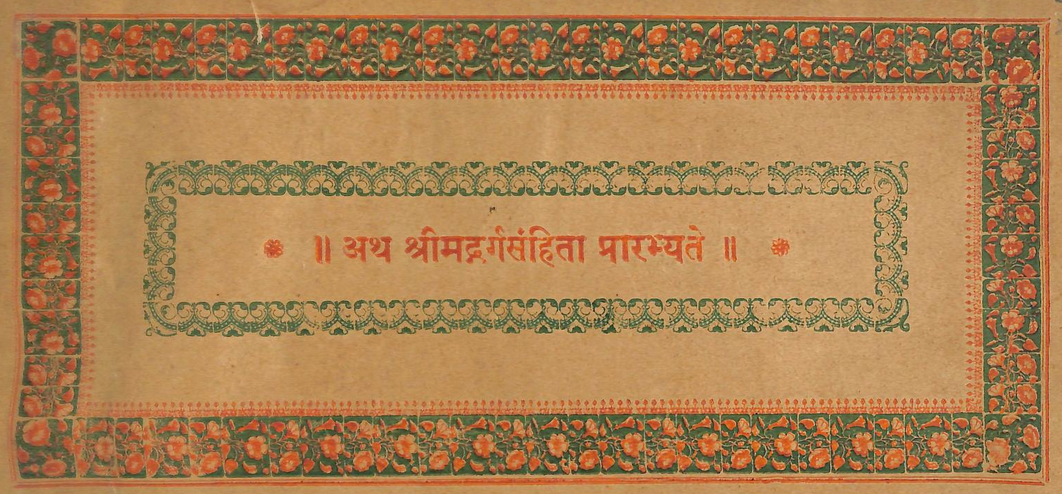 ॥ अथ श्रीमद्गर्गसंहिता प्रारभ्यते ॥